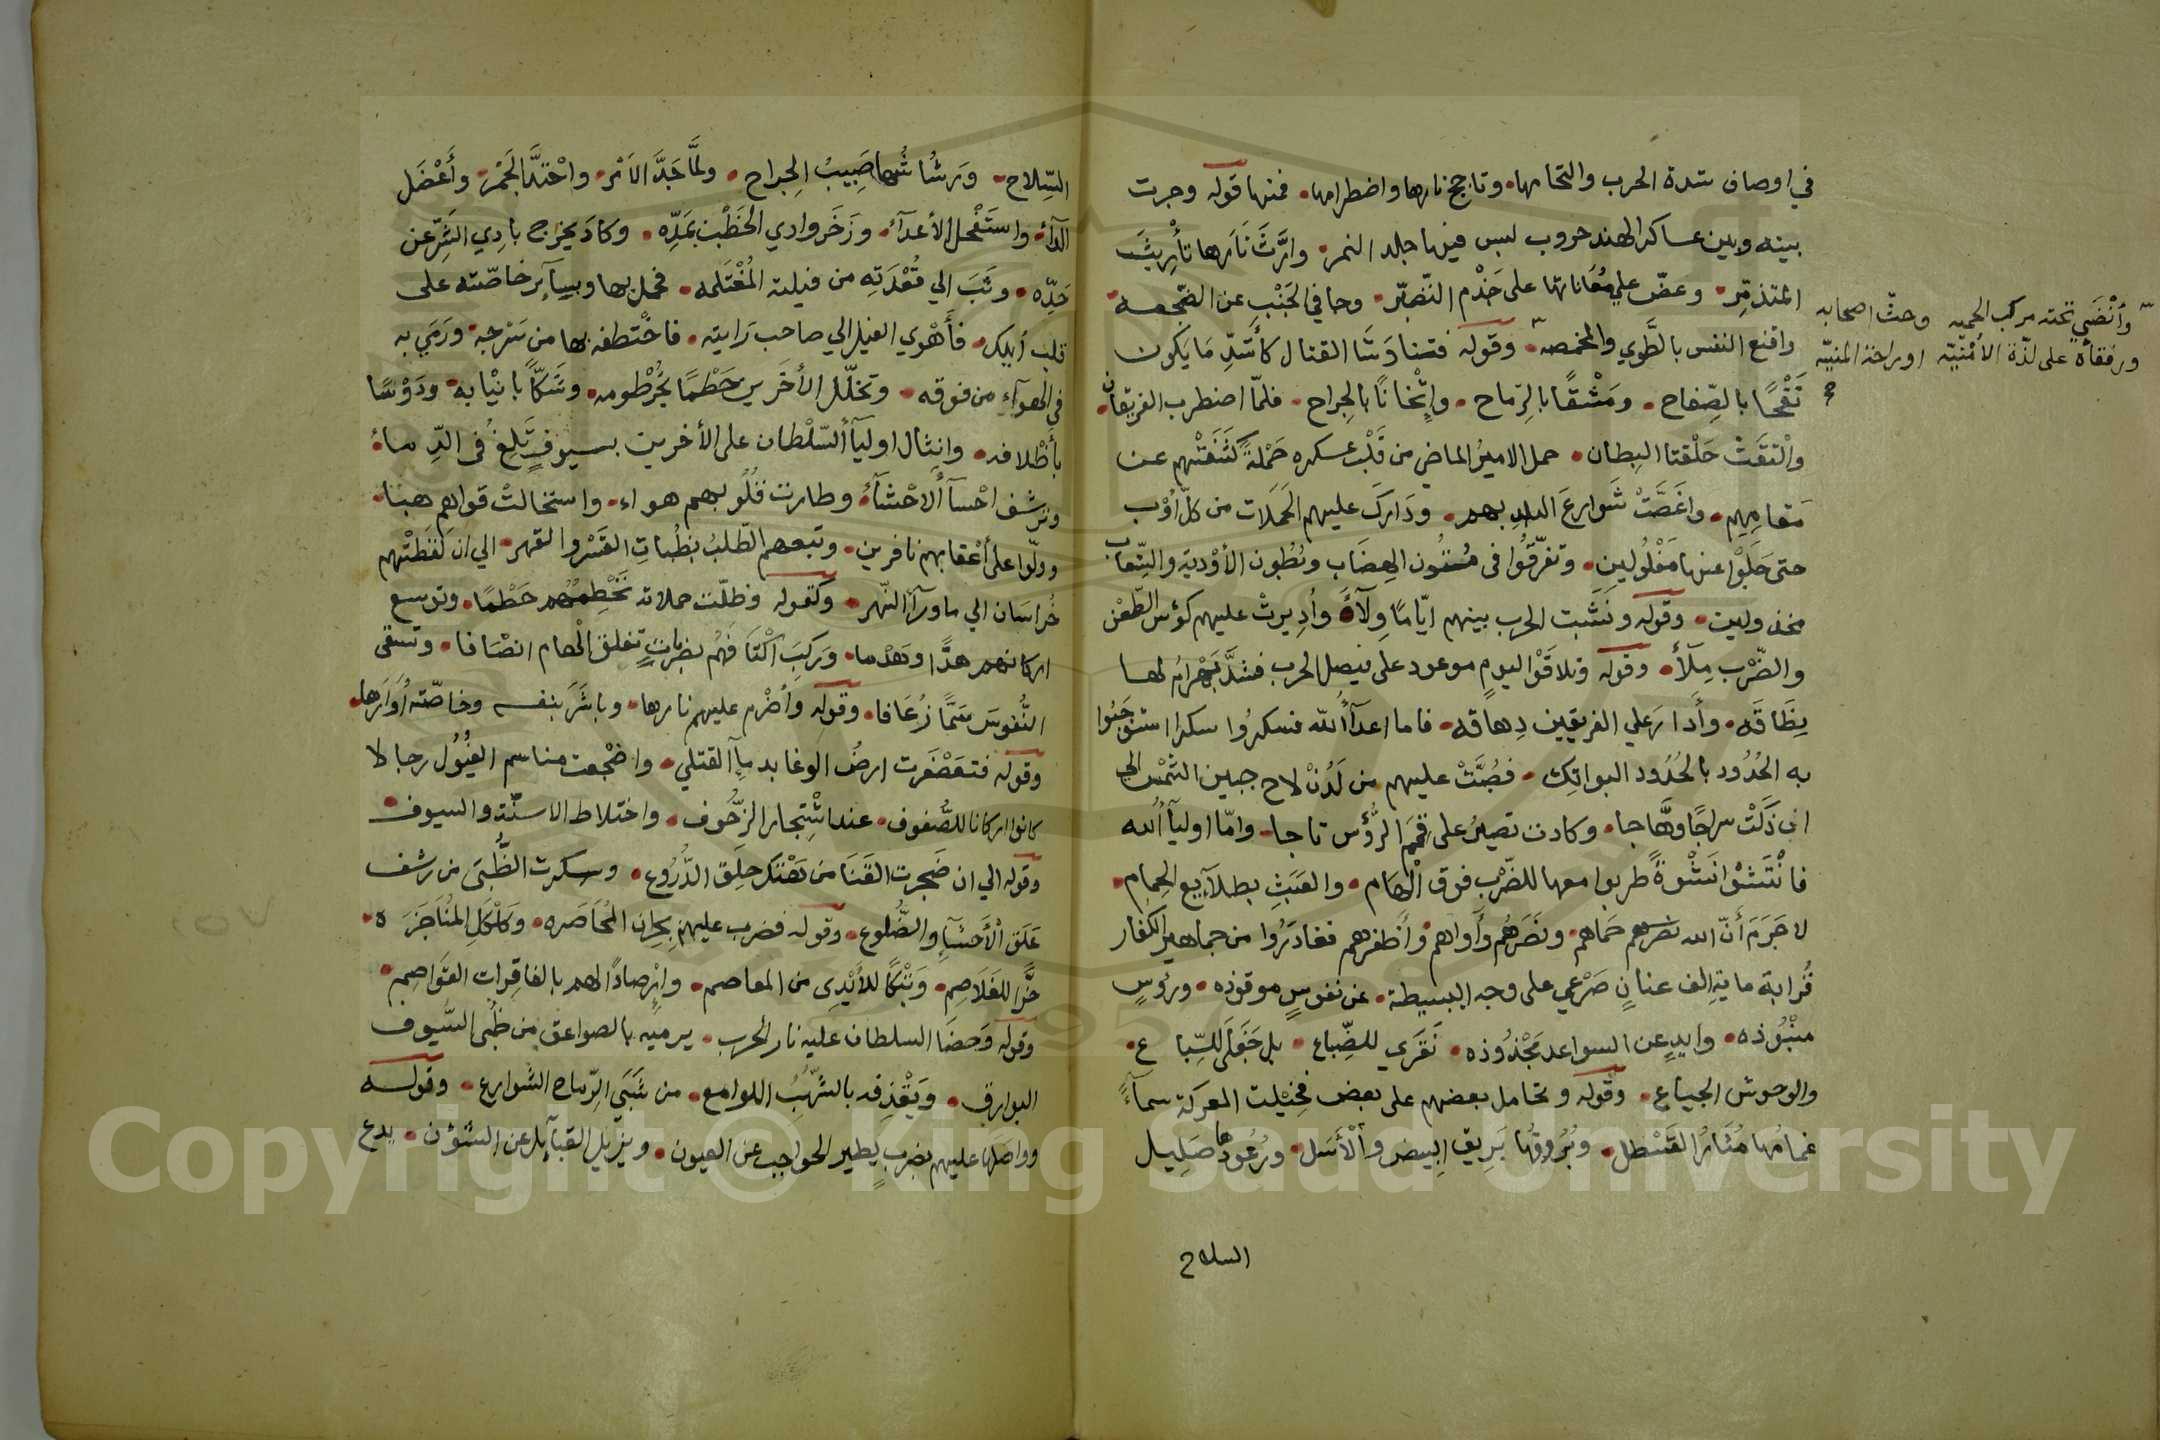 في اوصاف شدة الحرب والتحامها، وتاجج نارها واضطرامها، فمنها قوله وجرت
بينه وبين عساكر الهند حروب لبس فيها جلد النمر، وارّث نارها تأريث
المتذمّر، وعضّ علي مُعاناتها على جذم التصبّر، وجافي الجَنْب عن الضجعه،
واقنع النفس بالطَّوي والمخمصه، وقوله فتناوشا القتال كأشدّ ما يكون
وأَنْضَي تحته مركب الحميه وحثّ اصحابه
ورفقاه على لذّة الأمنيّه او راحة المنيّه
نَفْحًا بالصّفاح، ومَشْقًا بالرّماح، وإثخانًا بالجراح، فلمّا اضطرب الفريقان،
والْتقَتْ حَلْقتا البِطان، حمل الامير الماضي من قَلْب عسكره حَمْلةً كشَفَتْهم عن
مَقامِهِم، واغَصَّتْ شَوارعَ البلد بهم، ودَارَكَ عليهم الحَمَلات من كلّ اَوْب
حتى جَلَوْا عنها مَفْلُولين، وتفرّقُوا في متون الهِضَاب وبُطُون الأوْدية والشِّعاب
مخذولين، وقوله ونَشَبت الحرب بينهم ايّامًا وِلآءً، واُدِيرتْ عليهم كؤس الطّعْن
والضّرْب مِلآءً، وقوله وتلاقَوْا ليومٍ موعود على فيصل الحرب فشدَّ بَهْرامُ لها
نِطَاقَه، وأَدارَ علي الفريقين دِهاقَه، فاما اعدآءُ الله فسكرُوا سكرا استوجَبُوا
به الحُدُود بالحُدُود البواتِك، فصُبَّتْ عليهم من لَدُنْ لاح جبين الشمس الي
ان ذَكَتْ سراجًا وهَّاجا، وكادت تصيرُ على قِمَم الرُّؤس تاجا، وامّا اوليآءُ الله
فانْتَشَوْا نَشْوةً طربوا معها للضّرْب فوق الْهَام، والعَبَثِ بطلآيع الحِمام،
لا جَرَمَ أَنّ الله نصرهم حَماهم، ونَصَرهُم وأواهم، وأظفرهم فغادَرُوا من جماهير الكفار
قُرابة ماية الف عنانٍ صَرْعي على وجه البسيطة، عن نفوسٍ موقوذه، ورؤسٍ
منْبُوذه، وايدٍ عن السواعد مجْذُوذه، نَقَرَي للضِّباع، بل جَفَلَي للسِّباع،
والوحوش الجياع، وقوله وتحامل بعضهم على بعض فخيّلت المعركة سماءً
غمامُها مُثَارُ القَسْطل، وبُروقُها بَرِيق البِيض والْأَسَل، ورُعُودها صَلِيل
السلاح
السّلاح، ورَشَاشُها صَبِيبُ الجِراح، ولمَّا جَدَّ الاَمْر، واحْتدَّ الجَمْر، وأَعْضَل
الدآء، واستَفْحل الأعدآء، وزَخَر وادي الخَطْب بمَدِّه، وكادَ يخرج بادِي الشرّ عن
حَدِّه، وثَبَ الي قُعْدَتِه من فيلته المُغْتَلمه، فحمل بها وبسآير خاصّته على
قلب أيلك، فأَهْوي الفيل الي صاحب رَايته، فاخْتطفه بها من سَرْجه، ورَمَي به
في الهوآء من فوقه، وتخلّل الأخَرين حَطْمًا بخُرْطومه، وشَكًّا بانْيابه، ودَوْسًا
بأَظْلافه، وانثال اوليآء السّلْطان على الأخرين بسيوفٍ تَلِغُ في الدِّماء،
وترشف احْسآءُ الاحْشآءُ، وطارت قلُوبهم هواء، واستحالتْ قواهم هبا،
وولّوا على أَعْقابهم نافرين، وتبعهم الطّلبُ بظُباتِ القَسْر والقهر، الي ان لَفَظَتْهم
خُراسَان الي ماورآءَ النّهر، وكقوله وظلّت حملاته تَخْطِمُهُم حَطْمًا، وتوسع
اركانهم هدًّا وهدْما، ورَكِبَ اكْتَافَهُم بضَرباتٍ تفلق الْهام انصَافا، وتسقى
النُّفوسَ سَمًّا زُعَافا، وقوله واُضْرِم عليهم نارها، وباشَرَ بنفسه وخاصّته اُوَارَها،
وقوله فتعَصْفَرت ارضُ الوغا بدمآء القتلي، واضجعت مناسم الفيُول رجالا
كانوا اركانا للصُّفوف، عند اشْتِجار الزُّحُوف، واختلاط الاسنّة والسيوف،
وقوله الي ان ضَجِرت القَنَا من هَتْك حلَق الدُّرُوع، وسكرت الظُّبَى من رشف
عَلَق الْأَحْشآءِ والضُّلوع، وقوله فضرب عليهم بجِران المُحَاصَره، وكَلْكَلِ المُناجَزَ ه،
حَزًّا للغَلَاصِم، وَبَتْكًا للأَيْدِى من المعاصم، وإِرْصادًا لهم بالفاقِرات القَوَاصِم،
وقوله وَحضَا السلطان عليه نار الحرب، يرميه بالصواعق من ظُبى السُّيوف
البوارق، ويَقْذفه بالشّهُب اللوامع، من شَبَى الرّماح الشّوارع، وقوله
وواصلها عليهم بضربٍ يطير الحواجب عن العيون، ويزيّل القبآيل عن الشّؤن، يدع
Copyright © King Saud University